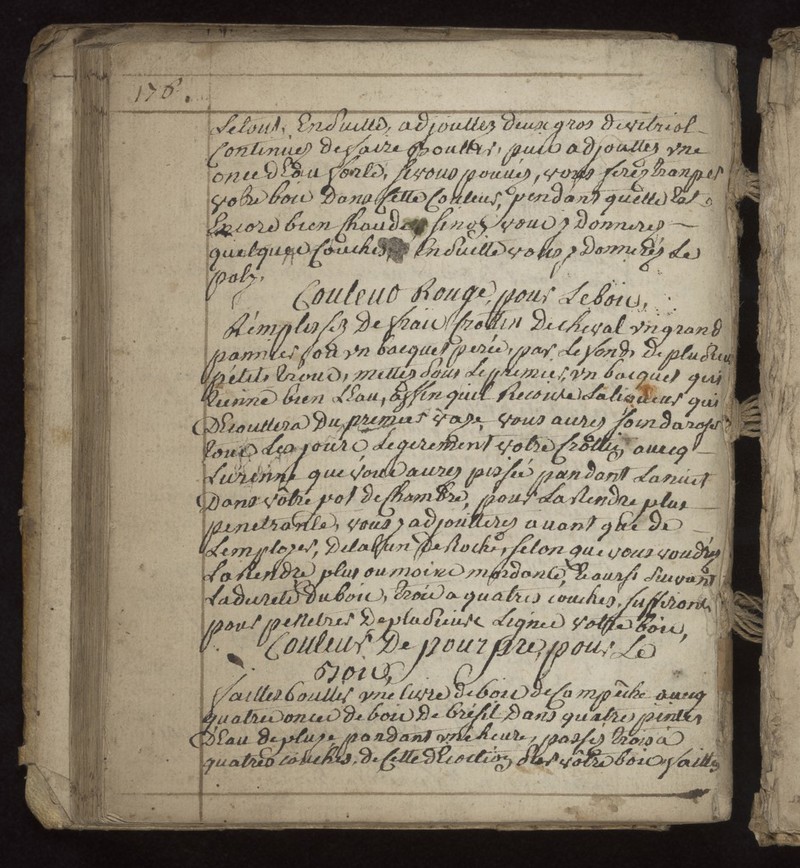 176.
Letout, Ensuitte, adjouttez deux gros de vitriol
Continües de faire Bouttir, puis adjouttes vne
once d'Eau forte, si vous pouués, vous ferés tranper
votre bois Dans Cette Couleur, pendant quelle Est
Encore bien Chaude, sinon vous y donneres
quelques Couches, Ensuitte vous y Donnerés Le
poly,
Couleur Rouge, pour Lebois,
Rémplissez De frais Crottin De cheval vn grand
pannier, ou vn bacquet perée, par Lefond, de plusieurs
pétits trous, mettes dous Lepremier, vn bacquet qui
tienne bien L'eau, affin quil Recoive La liqueur qui
Decouttera Du premier vase, vous aures soin daroser
tous Les jours Legerement votre Crottin auecq
Lurinne que vous aures pissée pandant Lanuit
Dans vôtre pot de chambre, pour La Rendre plus
penetrante, vous y adjoutteres auant que de
Lemployer, Delalun De Roche, selon que vous voudrés
La Rendre plus ou moins mordante, Et aussi suivant
La dureté du bois, trois a quatres couches, suffiront
pour penetrer De plusieurs Lignes votre bois,
Couleur De pourpre, pour Le
Bois,
faittes boullir vne livre de bois de Campêche auecq
quatres onces de bois de brésil, Dans quatres pintes
D'Eau de pluye pandant vne heure, passes trois a
quatres couches, de Cette decoction, sur vôtre bois, faittes